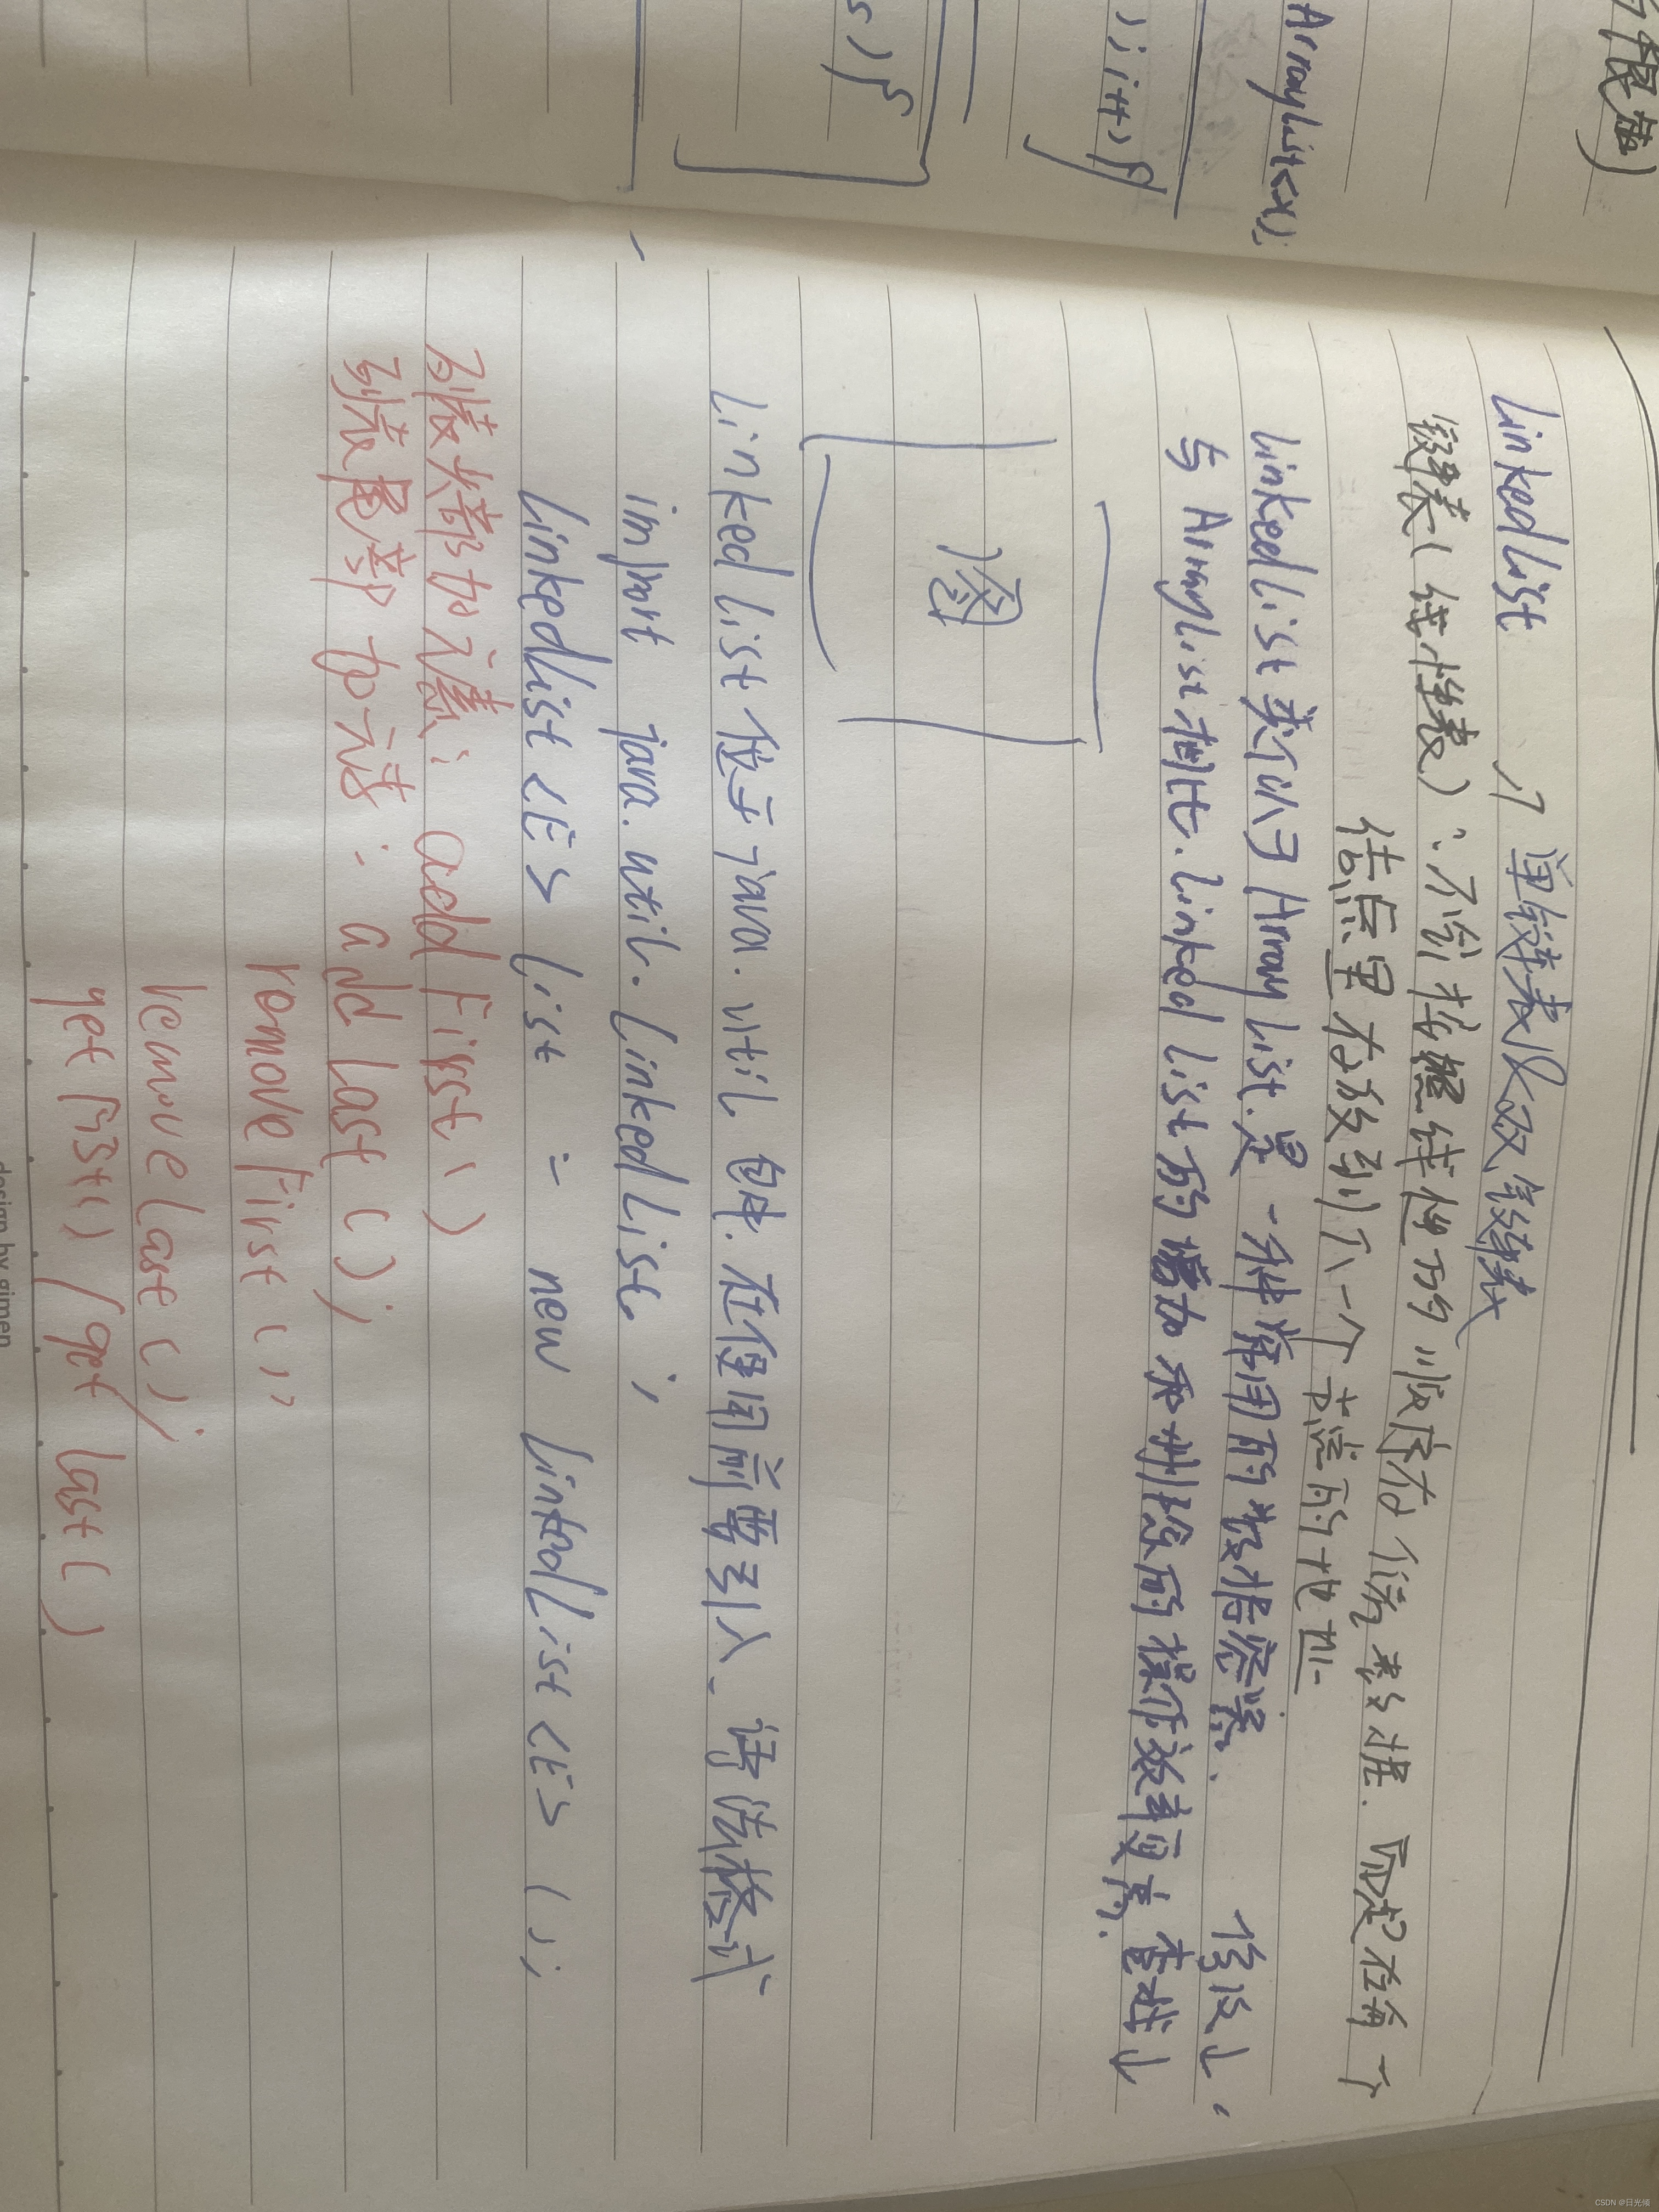 很慢)
ArrayList<>();
; i++) {
s) {
LinkedList 〉单链表及双链表
链表(线性表):不会按照线性的顺序存储数据.而是在每一个
结点里存放到下一个节点的地址
LinkedList类似于ArrayList.是一种常用的数据容器. 修改↓,
与ArrayList相比.LinkedList的增加和删除的操作效率更高. 查找↓
图
LinkedList位于java.util包中.在使用前要引入.语法格式
import java.util.LinkedList;
LinkedList<E> list = new LinkedList<E>();
列表头部加元素: addFirst()
列表尾部加元素: addLast();
romoveFirst();
removeLast();
getFirst() / getLast()
design by gimen
CSDN @日光倾